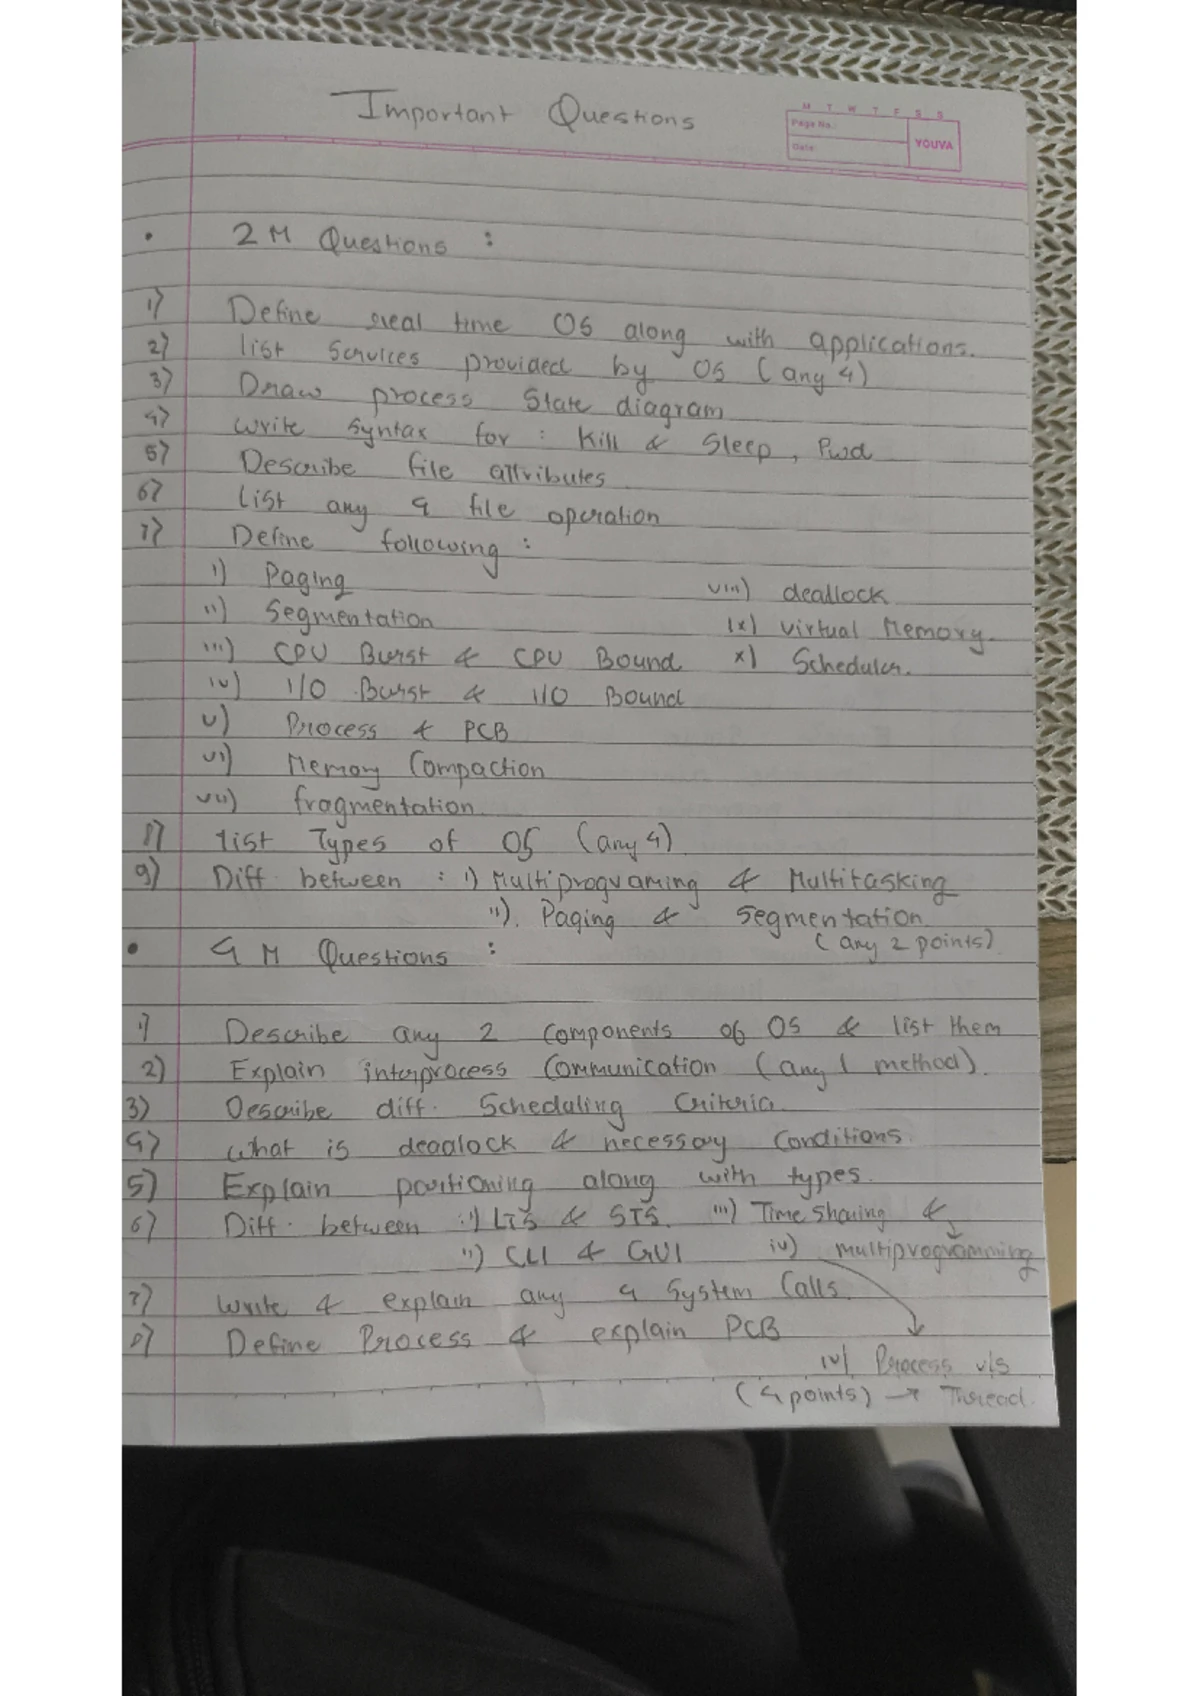 Important Questions
M T W T F S S
Page No.:
Date:
YOUVA
• 2 M Questions :
1) Define real time OS along with applications.
2) list Services provided by OS (any 4)
3) Draw process State diagram
4) write syntax for : Kill & Sleep, Pwd
5) Describe file attributes
6) list any 4 file operation
7) Define following :
i) Paging
viii) deallock
ii) Segmentation
ix) Virtual Memory.
iii) CPU Burst & CPU Bound
x) Scheduler.
iv) I/O Burst & I/O Bound
v) Process & PCB
vi) Memory Compaction
vii) fragmentation
8) list Types of OS (any 4)
9) Diff between : i) Multiprograming & Multitasking
ii). Paging & Segmentation
(any 2 points)
• 4 M Questions :
1) Describe any 2 Components of OS & list them
2) Explain interprocess Communication (any 1 method).
3) Describe diff. Scheduling Criteria.
4) what is deadlock & necessary Conditions.
5) Explain partitioning along with types.
6) Diff. between : i) LTS & STS. iii) Time sharing &
ii) CLI & GUI iv) multiprogramming
7) Write & explain any 4 System Calls.
8) Define Process & explain PCB
iv) Process v/s
(4 points) → Thread.